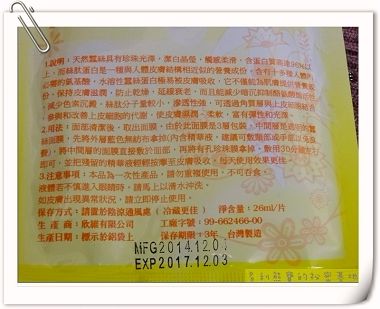 1.說明：天然蠶絲具有珍珠光澤，潔白晶瑩，觸感柔滑，含蛋白質高達96%以
上，而絲肽蛋白是一種與人體皮膚結構相近似的營養成份，含有十多種人體內
必需的氨基酸，水溶性蠶絲蛋白極易被皮膚吸收，它不僅能為肌膚提供營養
，保持皮膚滋潤，防止乾燥，延緩衰老，而且能減少暗沉抑制酪氨酸酶活性
，減少色素沉澱，絲肽分子量較小，滲透性強，可透過角質層與上皮細胞結合
參與和改善上皮細胞的代謝，使皮膚濕潤、柔軟，富有彈性和光澤。
2.用法：面部清潔後，取出面膜，由於此面膜是3層包裝，中間層是透明的蠶
絲面膜，先將外層藍色無紡布拿掉
將中間層的面膜直接敷於面部，再將有孔珍珠膜拿掉，敷用30分鐘左右
即可，並把殘留的精華液輕輕按摩至皮膚吸收，每天使用效果更佳。
3.注意事項：本品為一次性產品，請勿重複使用，不可吞食。
液體若不慎進入眼睛時，請馬上以清水沖洗。
如皮膚出現異常狀況，請立即停止使用。
保存方式：請置於陰涼通風處（冷藏更佳） 淨含量：26ml/片
生 產 商：欣維有限公司 工廠字號：99-662466-00
生產日期：標示於鋁袋上 保存期限：3年 台灣製造
MFG2014.12.04
EXP2017.12.03